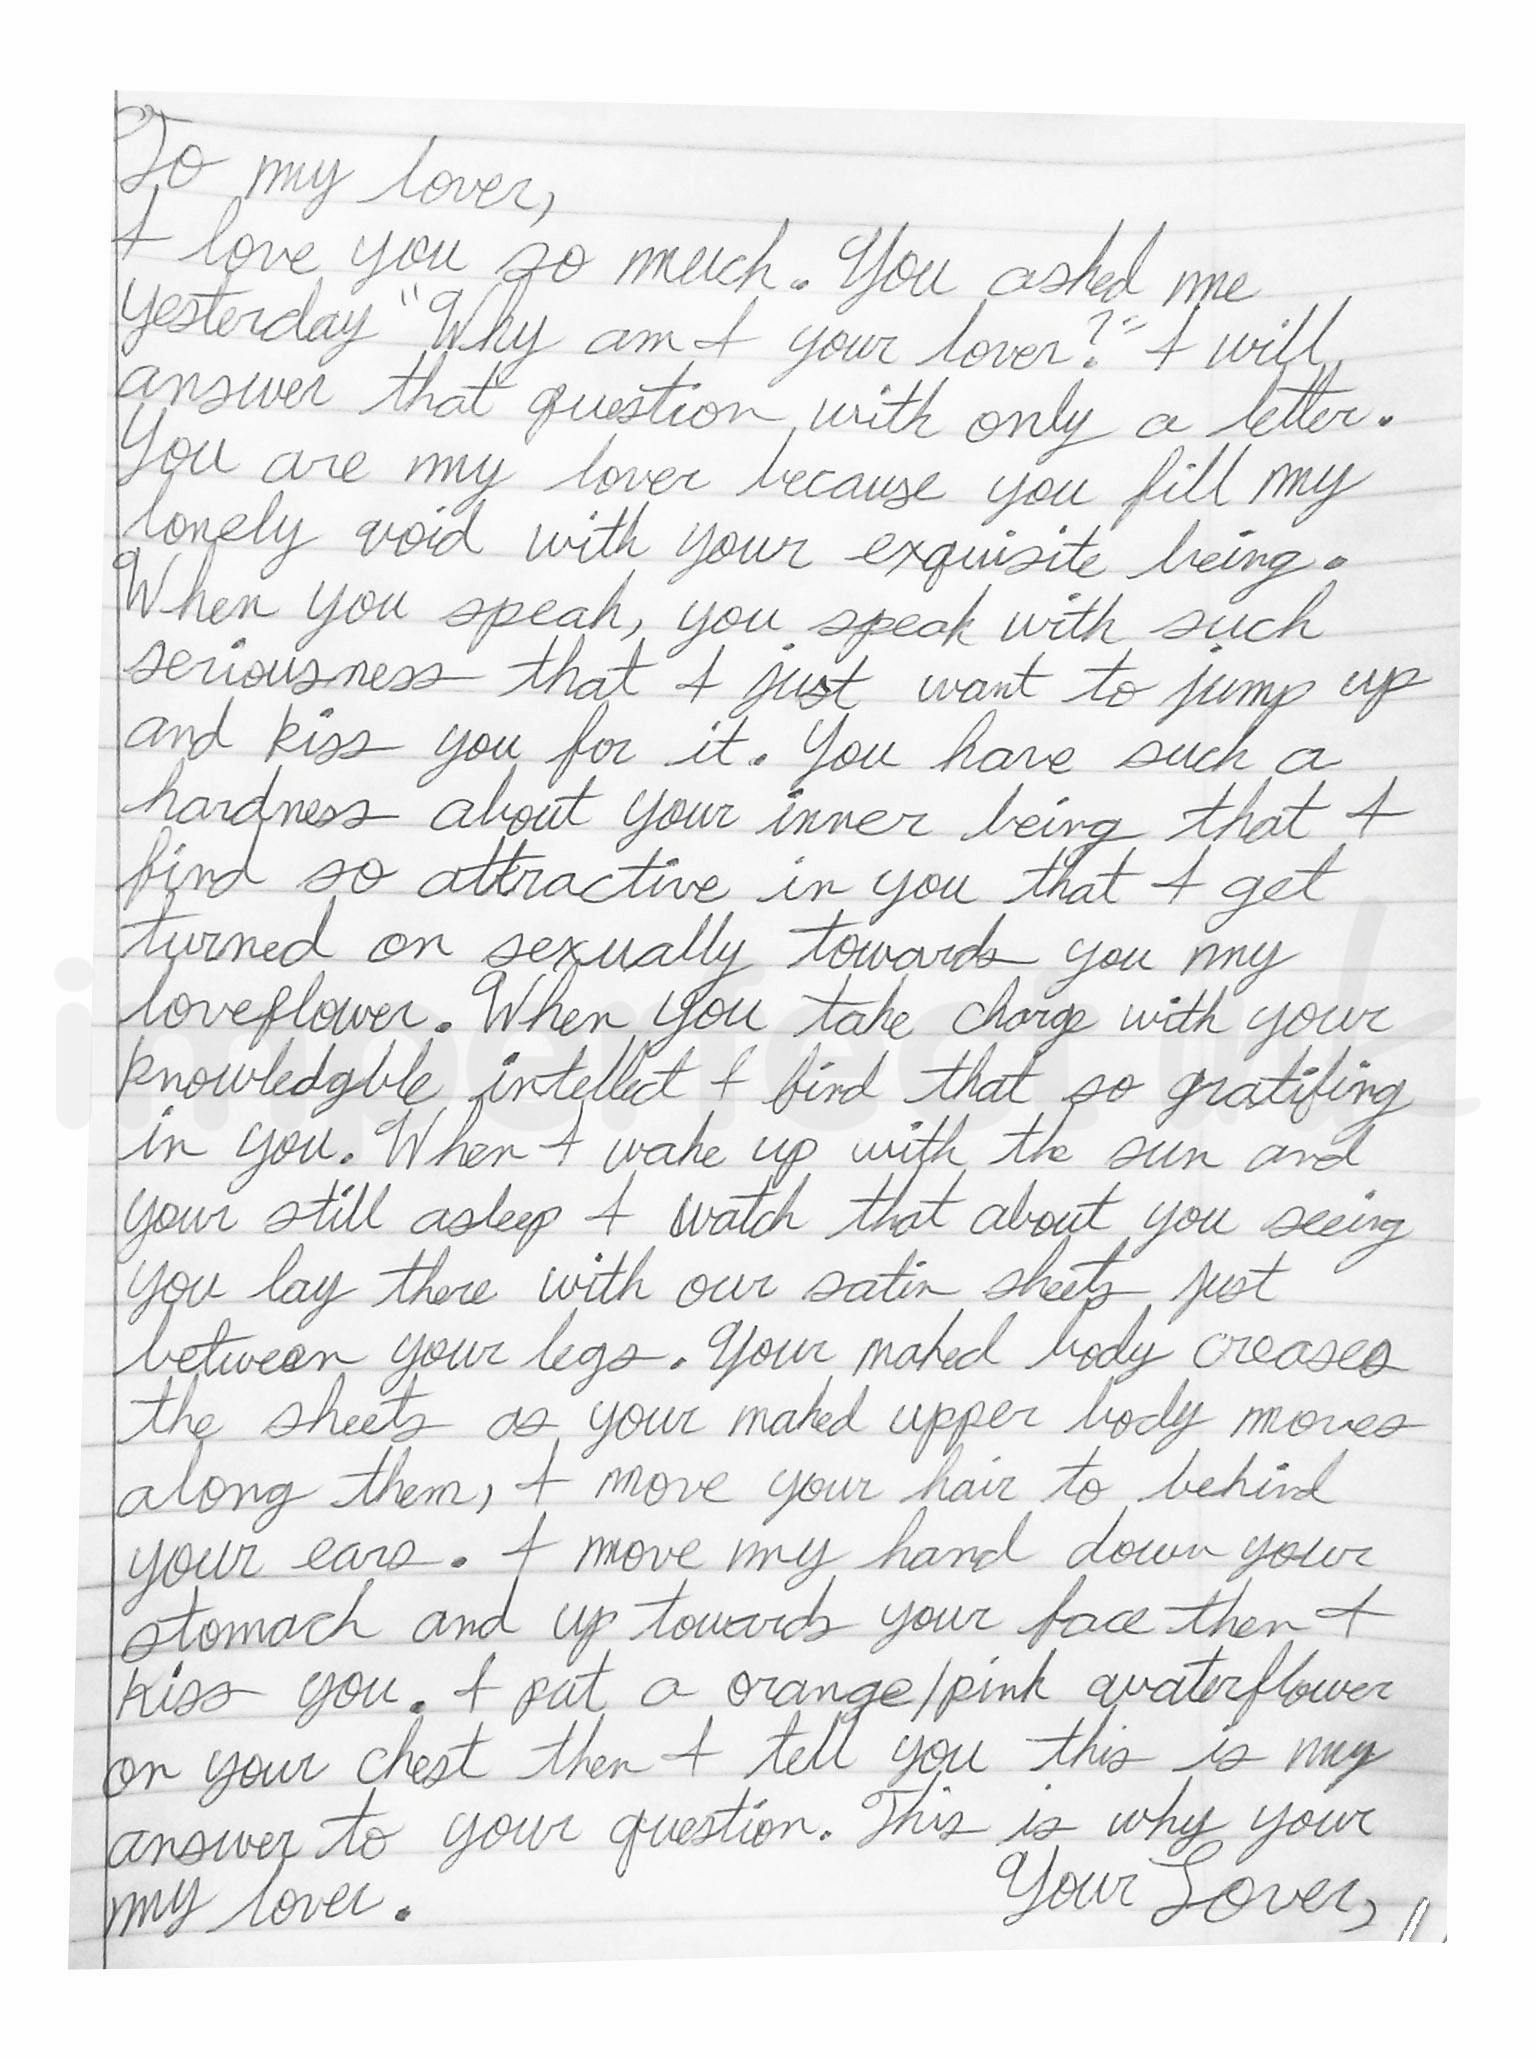 To my lover,
I love you so much. You asked me
yesterday "Why am I your lover?" I will
answer that question with only a letter.
You are my lover because you fill my
lonely void with your exquisite being.
When you speak, you speak with such
seriousness that I just want to jump up
and kiss you for it. You have such a
hardness about your inner being that I
find so attractive in you that I get
turned on sexually towards you my
loveflower. When you take charge with your
knowledgble intellect I find that so gratifing
in you. When I wake up with the sun and
your still asleep I watch that about you seeing
you lay there with our satin sheets just
between your legs. Your naked body creases
the sheets as your naked upper body moves
along them, I move your hair to behind
your ears. I move my hand down your
stomach and up towards your face then I
kiss you. I put a orange/pink waterflower
on your chest then I tell you this is my
answer to your question. This is why your
my lover.
Your Lover,
imperfect ink